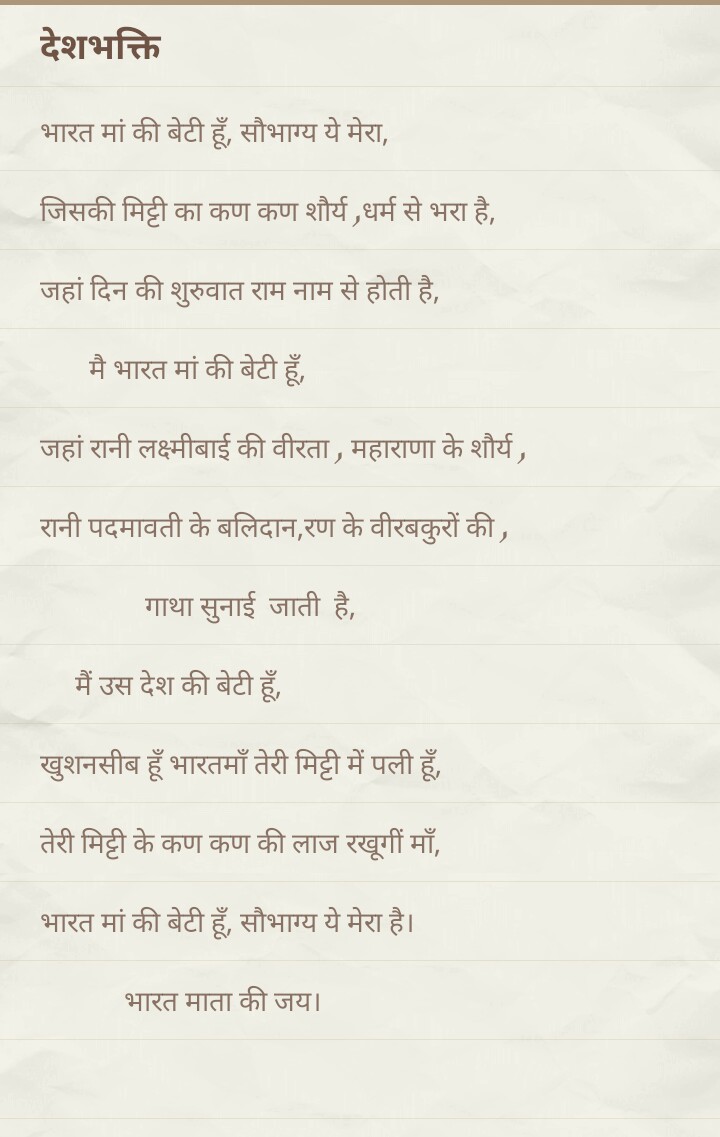 देशभक्ति
भारत मां की बेटी हूँ, सौभाग्य ये मेरा,
जिसकी मिट्टी का कण कण शौर्य ,धर्म से भरा है,
जहां दिन की शुरुवात राम नाम से होती है,
मै भारत मां की बेटी हूँ,
जहां रानी लक्ष्मीबाई की वीरता , महाराणा के शौर्य ,
रानी पदमावती के बलिदान,रण के वीरबकुरों की ,
गाथा सुनाई जाती है,
मैं उस देश की बेटी हूँ,
खुशनसीब हूँ भारतमाँ तेरी मिट्टी में पली हूँ,
तेरी मिट्टी के कण कण की लाज रखूगीं माँ,
भारत मां की बेटी हूँ, सौभाग्य ये मेरा है।
भारत माता की जय।